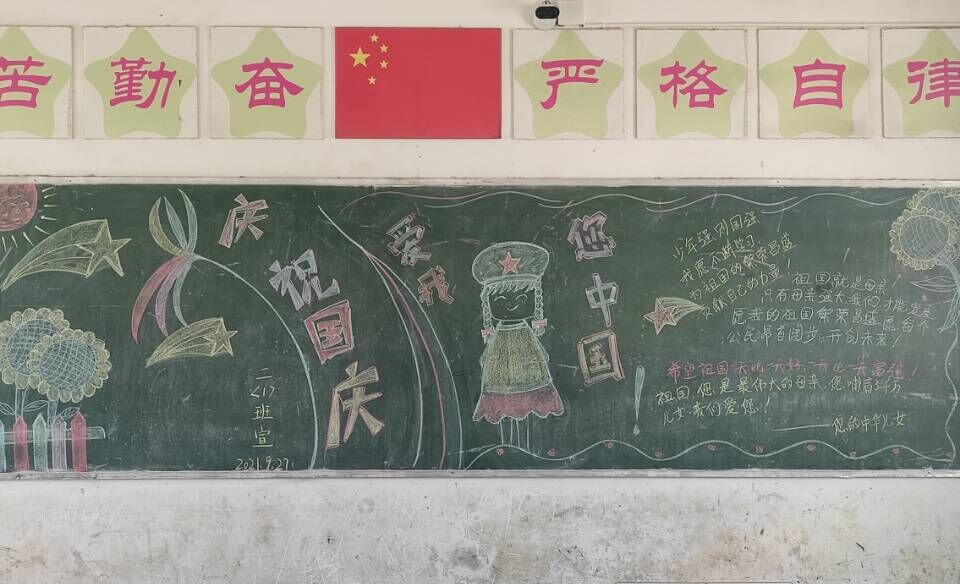 苦 勤 奋 严 格 自 律
庆
祝
国
庆
爱
我
您
中
国
！
二
<1>
班
宣
2021.9.27.
少年强,则国强
我愿不断学习
为祖国的繁荣昌盛
贡献自己的力量！
祖国就是母亲,
只有母亲强大我们才能发展
愿我的祖国繁荣昌盛,愿合个
公民昂首阔步,开创未来！
希望祖国一天比一天好,一天比一天富强！
祖国,您是最伟大的母亲,您哺育
儿女,我们爱您！
——您的中华儿女